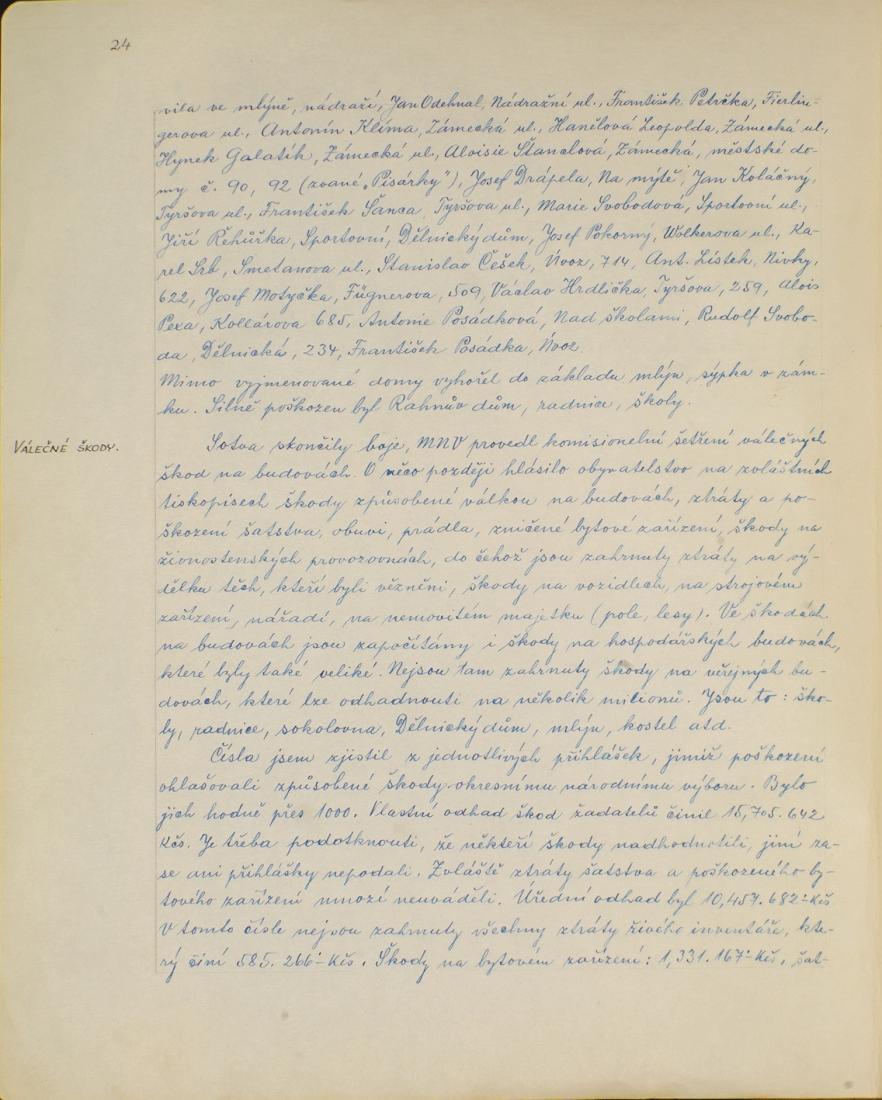 24
vila ve mlýně, nádraží, Jan Odehnal, Nádražní ul., František Petrčka, Fierlin-
gerova ul., Antonín Klíma, Zámecká ul., Hanělová Leopolda, Zámecká ul.,
Hynek Galatík, Zámecká ul., Aloisie Štanclová, Zámecká, městské do-
my č. 90, 92 (zvané „Pisárky"), Josef Drápela, Na mýtě, Jan Koláčný,
Tyršova ul., František Šanca, Tyršova ul., Marie Svobodová, Sportovní ul.,
Jiří Řehůřka, Sportovní, Dělnický dům, Josef Pokorný, Wolkerova ul., Ka-
rel Srb, Smetanova ul., Stanislav Češek, Úvoz, 714, Ant. Lístek, Nivky,
622, Josef Motyčka, Fügnerova, 509, Václav Hrdlička, Tyršova, 259, Alois
Pexa, Kollárova 685, Antonie Posádková, Nad školami, Rudolf Svobo-
da, Dělnická, 234, František Posádka, Úvoz.
Mimo vyjmenované domy vyhořel do základu mlýn, sýpka v zám-
ku. Silně poškozen byl Rahnův dům, radnice, školy.
VÁLEČNÉ ŠKODY.
Sotva skončily boje, MNV provedl komisionelní šetření válečných
škod na budovách. O něco později hlásilo obyvatelstvo na zvláštních
tiskopisech škody způsobené válkou na budovách, ztráty a po-
škození šatstva, obuvi, prádla, zničené bytové zařízení, škody na
živnostenských provozovnách, do čehož jsou zahrnuty ztráty na vý-
dělku těch, kteří byli vězněni, škody na vozidlech, na strojovém
zařízení, nářadí, na nemovitém majetku (pole, lesy). Ve škodách
na budovách jsou započítány i škody na hospodářských budovách,
které byly také veliké. Nejsou tam zahrnuty škody na veřejných bu-
dovách, které lze odhadnouti na několik milionů. Jsou to: ško-
ly, radnice, sokolovna, Dělnický dům, mlýn, kostel atd.
Čísla jsem zjistil z jednotlivých přihlášek, jimiž poškození
ohlašovali způsobené škody okresnímu národnímu výboru. Bylo
jich hodně přes 1000. Vlastní odhad škod žadatelů činil 15,705.642
Kčs. Je třeba podotknouti, že někteří škody nadhodnotili, jiní za-
se ani přihlášky nepodali. Zvláště ztráty šatstva a poškozeného by-
tového zařízení mnozí neuváděli. Úřední odhad byl 10,457.682·- Kčs
V tomto čísle nejsou zahrnuty všechny ztráty živého inventáře, kte-
rý činí 585.266·- Kčs. Škody na bytovém zařízení: 1,331.167·- Kčs, šat-